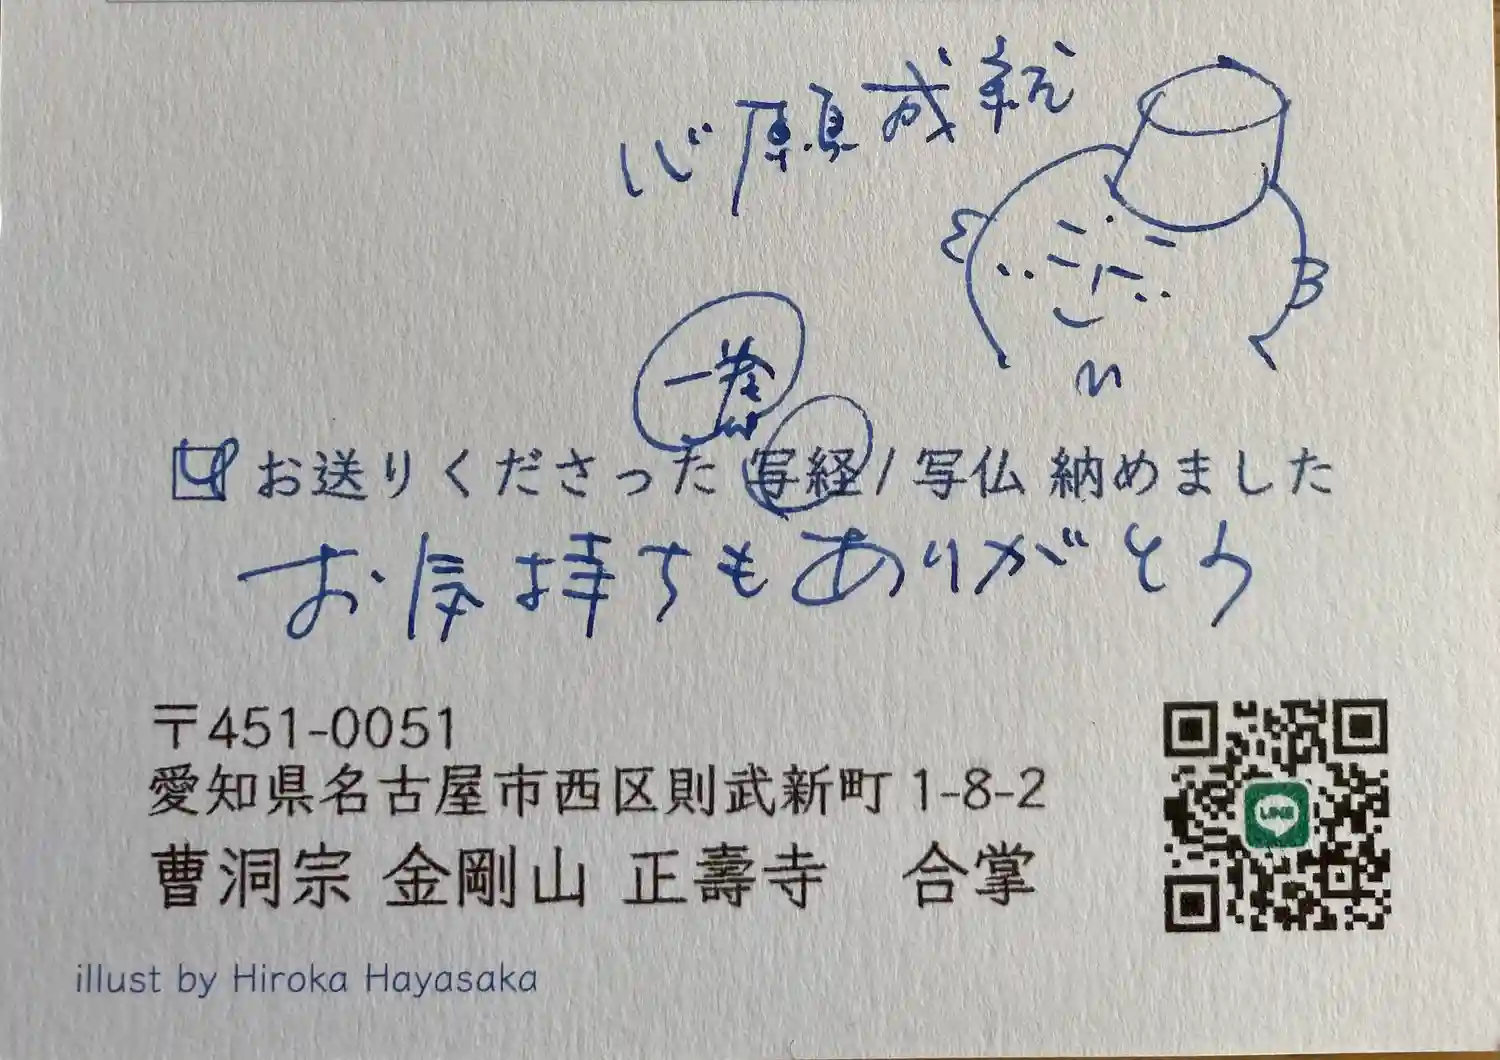 心願成就
一巻
お送りくださった 写経 / 写仏 納めました
お気持ちもありがとう
〒451-0051
愛知県名古屋市西区則武新町 1-8-2
曹洞宗 金剛山 正壽寺 合掌
LINE
illust by Hiroka Hayasaka